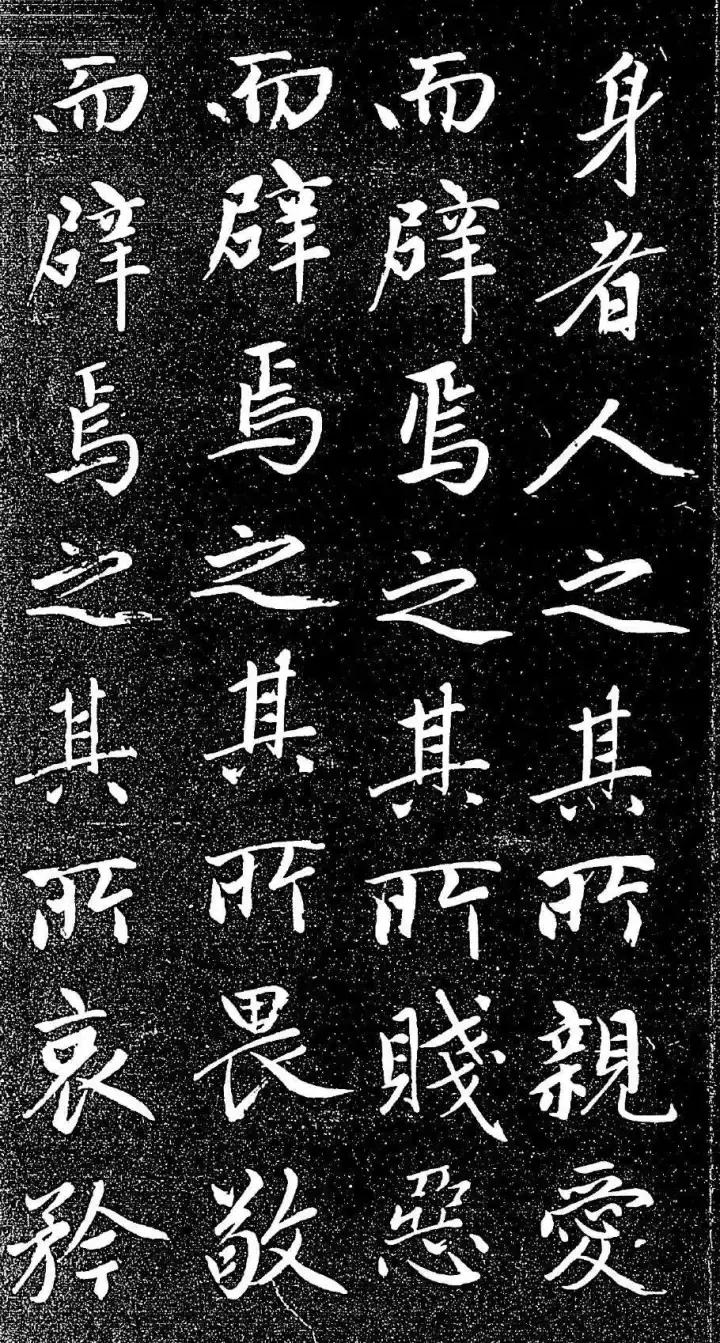 身者人之其所親愛
而辟焉之其所賤惡
而辟焉之其所畏敬
而辟焉之其所哀矜